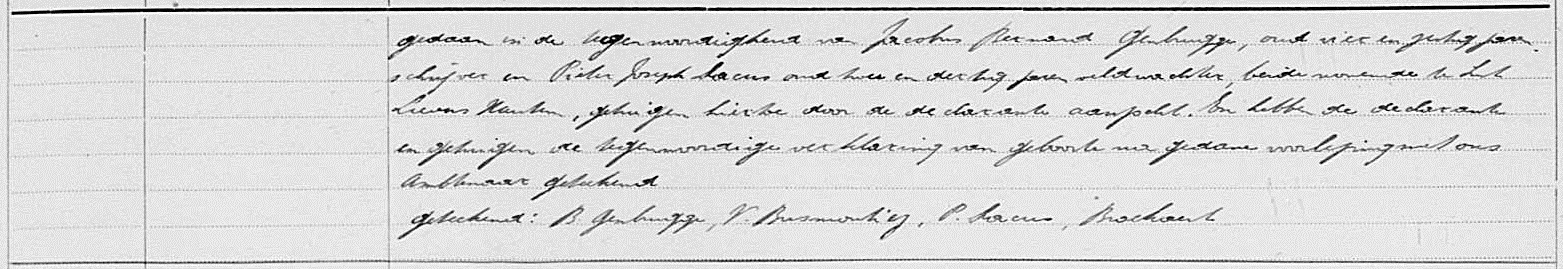 gedaan in de tegenwoordigheid van Jacobus Bernard Genbrugge, oud vier en zestig jaren
schrijver en Pieter Joseph Sacus oud twee en dertig jaren veldwachter, beide wonende te Sint
Lievens Hautem, getuigen hiertoe door de declarante aanzocht. En hebben de declarante
en getuigen de tegenwoordige verklaring van geboorte na gedane voorlezing met ons
Ambtenaar geteekend
geteekend: B. Genbrugge, V. P. Sacus, Broekaert